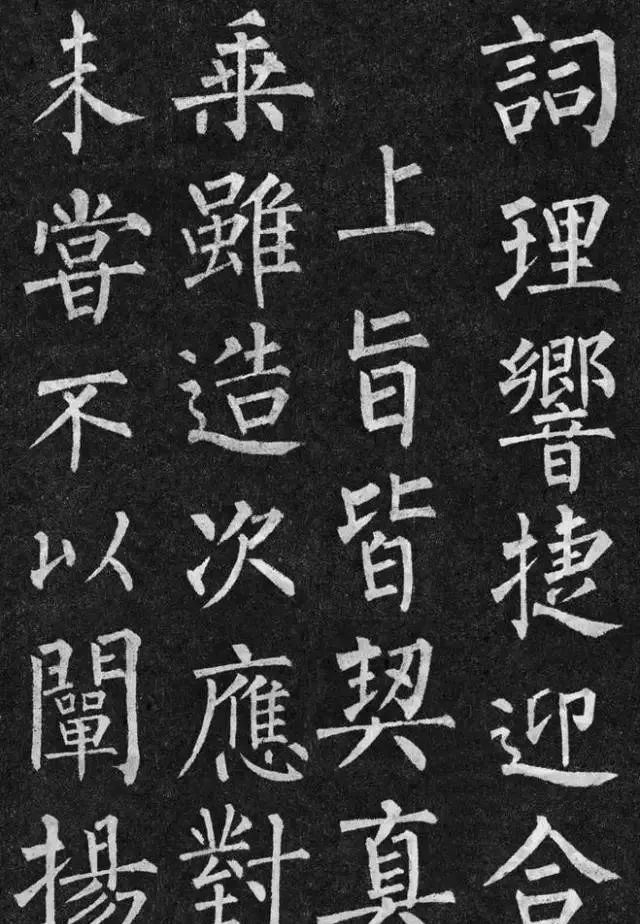 詞理響捷迎合
上旨皆契真
乘雖造次應對
未嘗不以闡揚